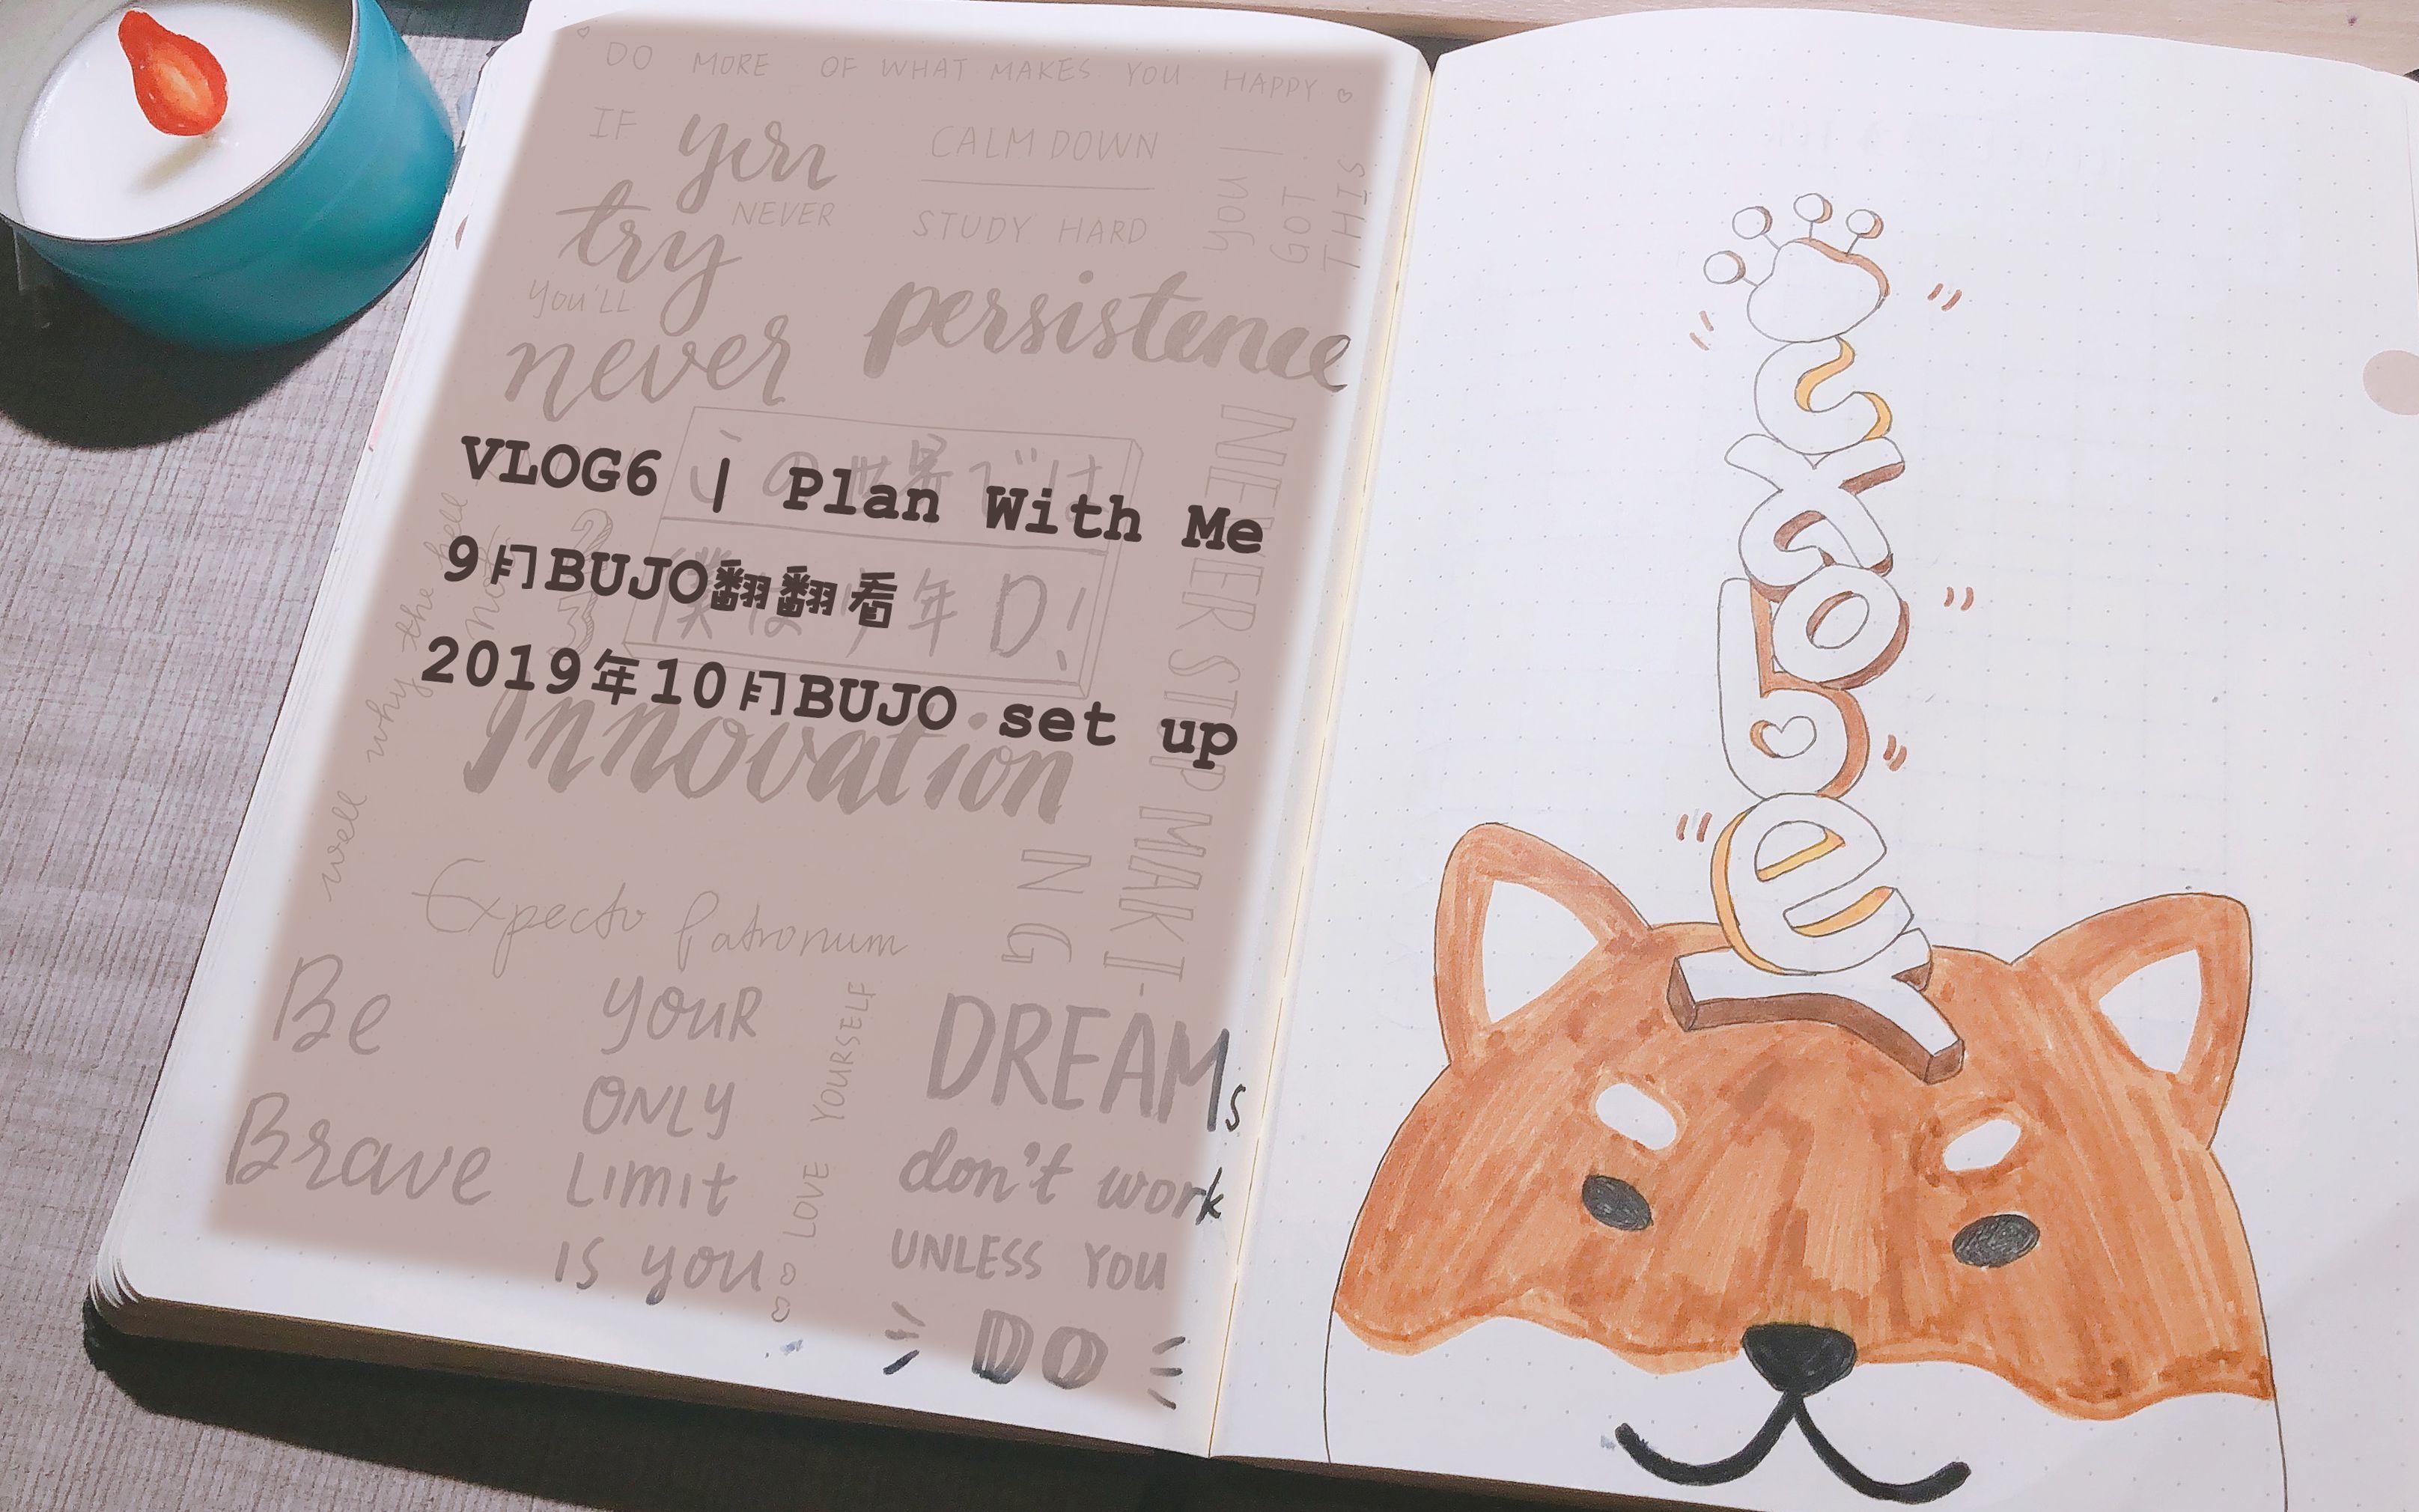 DO MORE OF WHAT MAKES YOU HAPPY
IF you
try NEVER
YOU'LL
never
CALM DOWN
STUDY HARD
YOU
GOT
THIS
persistence
この世界では
僕は少年D!
VLOG6 | Plan With Me
9月BUJO翻翻看
2019年10月BUJO set up
well why the hell
not
NEVER STOP MAKI-
NG
Innovation
Expecto Patronum
Be
Brave
YOUR
ONLY
LIMIT
IS YOU
LOVE YOURSELF
DREAMs
don't work
UNLESS YOU
DO
October